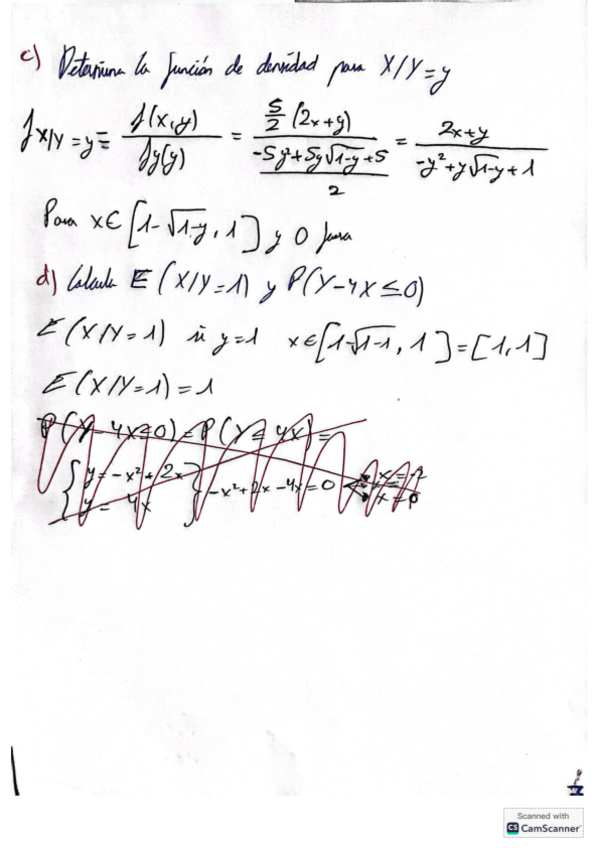 c) Determina la función de densidad para X/Y=y
f X/Y=y = f(x,y) / fy(y) = 5/2 (2x+y) / ((-5y²+5y√1-y+5) / 2) = 2x+y / (-y²+y√1-y+1)
Para x∈[1-√1-y, 1] y 0 fuera
d) Calcula E(X/Y=1) y P(Y-4X≤0)
E(X/Y=1) si y=1 x∈[1-√1-1, 1]=[1,1]
E(X/Y=1)=1
P(Y-4X≤0)=P(Y≤4X)=
{y=-x²+2x
y=4x} -x²+2x-4x=0
x=0
Scanned with
CS CamScanner